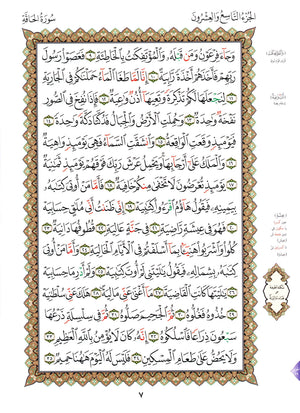 الجزء التاسع والعشرون سورة الحاقة
وَجَآءَ فِرْعَوْنُ وَمَن قَبْلَهُۥ وَٱلْمُؤْتَفِكَٰتُ بِٱلْخَاطِئَةِ ٩ فَعَصَوْا۟ رَسُولَ
رَبِّهِمْ فَأَخَذَهُمْ أَخْذَةً رَّابِيَةً ١٠ إِنَّا لَمَّا طَغَا ٱلْمَآءُ حَمَلْنَٰكُمْ فِى ٱلْجَارِيَةِ
١١ لِنَجْعَلَهَا لَكُمْ تَذْكِرَةً وَتَعِيَهَآ أُذُنٌ وَٰعِيَةٌ ١٢ فَإِذَا نُفِخَ فِى ٱلصُّورِ
نَفْخَةٌ وَٰحِدَةٌ ١٣ وَحُمِلَتِ ٱلْأَرْضُ وَٱلْجِبَالُ فَدُكَّتَا دَكَّةً وَٰحِدَةً ١٤
فَيَوْمَئِذٍ وَقَعَتِ ٱلْوَاقِعَةُ ١٥ وَٱنشَقَّتِ ٱلسَّمَآءُ فَهِىَ يَوْمَئِذٍ وَاهِيَةٌ
١٦ وَٱلْمَلَكُ عَلَىٰٓ أَرْجَآئِهَا وَيَحْمِلُ عَرْشَ رَبِّكَ فَوْقَهُمْ يَوْمَئِذٍ ثَمَٰنِيَةٌ
١٧ يَوْمَئِذٍ تُعْرَضُونَ لَا تَخْفَىٰ مِنكُمْ خَافِيَةٌ ١٨ فَأَمَّا مَنْ أُوتِىَ كِتَٰبَهُۥ
بِيَمِينِهِۦ فَيَقُولُ هَآؤُمُ ٱقْرَءُوا۟ كِتَٰبِيَهْ ١٩ إِنِّى ظَنَنتُ أَنِّى مُلَٰقٍ حِسَابِيَهْ
٢٠ فَهُوَ فِى عِيشَةٍ رَّاضِيَةٍ ٢١ فِى جَنَّةٍ عَالِيَةٍ ٢٢ قُطُوفُهَا دَانِيَةٌ ٢٣
كُلُوا۟ وَٱشْرَبُوا۟ هَنِيٓـًٔۢا بِمَآ أَسْلَفْتُمْ فِى ٱلْأَيَّامِ ٱلْخَالِيَةِ ٢٤ وَأَمَّا مَنْ أُوتِىَ
كِتَٰبَهُۥ بِشِمَالِهِۦ فَيَقُولُ يَٰلَيْتَنِى لَمْ أُوتَ كِتَٰبِيَهْ ٢٥ وَلَمْ أَدْرِ مَا حِسَابِيَهْ
٢٦ يَٰلَيْتَهَا كَانَتِ ٱلْقَاضِيَةَ ٢٧ مَآ أَغْنَىٰ عَنِّى مَالِيَهْ ٢٨ هَلَكَ عَنِّى سُلْطَٰنِيَهْ
٢٩ خُذُوهُ فَغُلُّوهُ ٣٠ ثُمَّ ٱلْجَحِيمَ صَلُّوهُ ٣١ ثُمَّ فِى سِلْسِلَةٍ ذَرْعُهَا
سَبْعُونَ ذِرَاعًا فَٱسْلُكُوهُ ٣٢ إِنَّهُۥ كَانَ لَا يُؤْمِنُ بِٱللَّهِ ٱلْعَظِيمِ
٣٣ وَلَا يَحُضُّ عَلَىٰ طَعَامِ ٱلْمِسْكِينِ ٣٤ فَلَيْسَ لَهُ ٱلْيَوْمَ هَٰهُنَا حَمِيمٌ ٣٥
٧